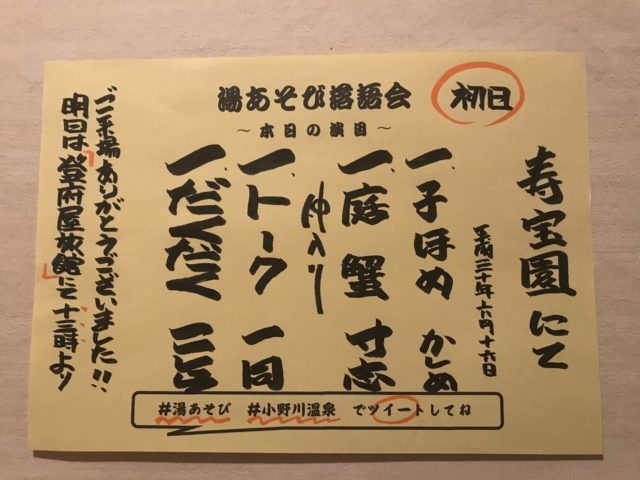 湯あそび落語会
初日
～本日の演目～
寿宝園にて
平成三十年六月十六日
一、子ほめ かしめ
一、庭蟹 寸志
仲入り
一、トーク 一同
一、だくだく
ご来場ありがとうございました!!
明日は「登府屋旅館」にて十三時より
#湯あそび #小野川温泉 でツイートしてね